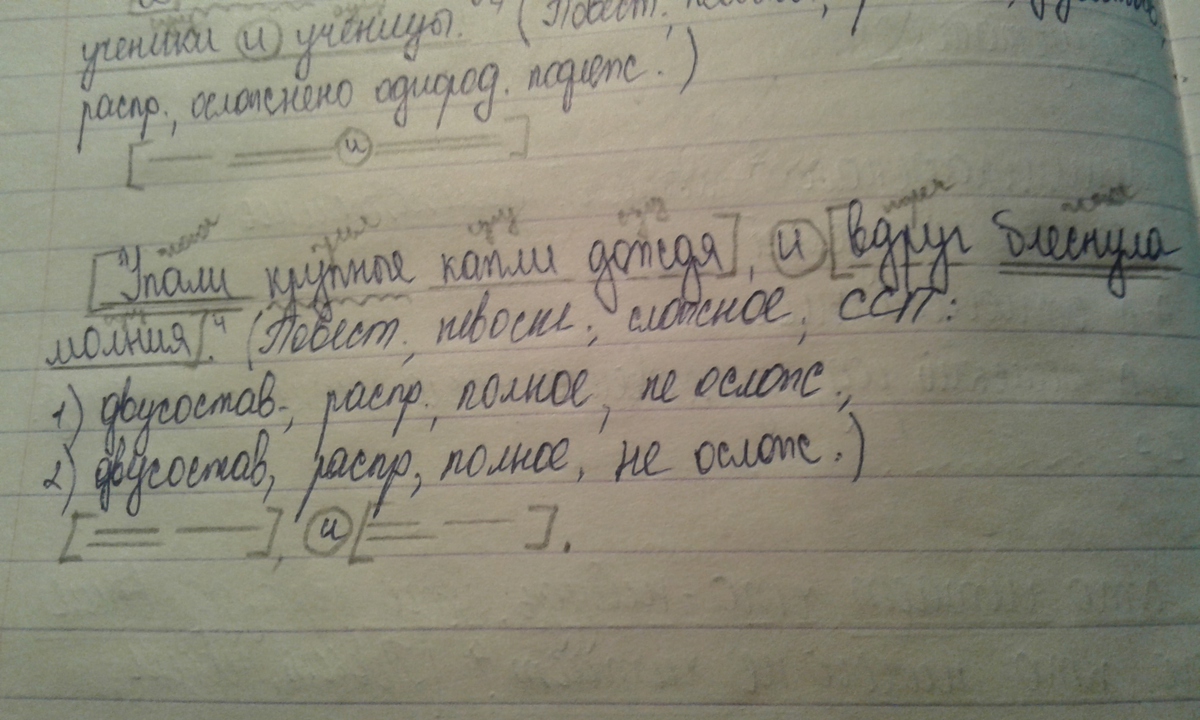 ученики и ученицы. (Повест.,
распр., осложнено однород. подлеж.)
[ и ]
[Упали крупные капли дождя], и [вдруг блеснула
молния].⁴ (Повест., невоскл., сложное, ССП:
1) двусостав., распр., полное, не ослож.,
2) двусостав, распр, полное, не ослож.)
[ ], и [ ].